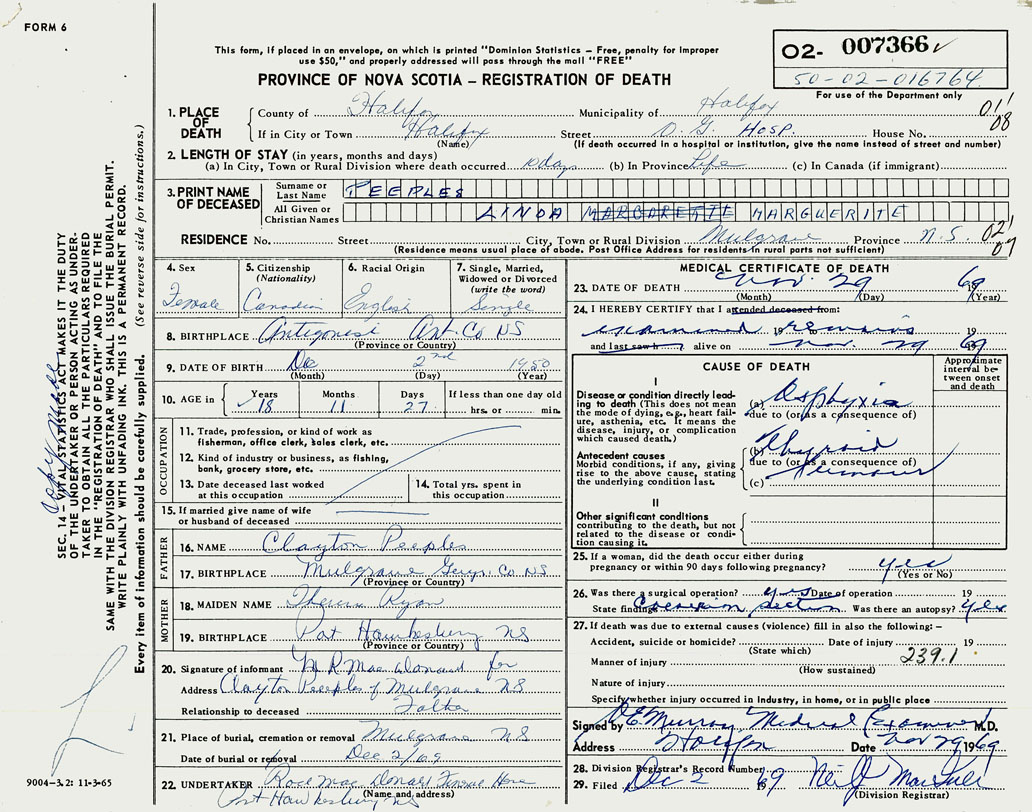 FORM 6
This form, if placed in an envelope, on which is printed "Dominion Statistics – Free, penalty for improper
use $50," and properly addressed will pass through the mail "FREE"
PROVINCE OF NOVA SCOTIA – REGISTRATION OF DEATH
O2- 007366
50-02-016764
For use of the Department only
01' 08
1. PLACE OF DEATH
County of Halifax Municipality of Halifax
If in City or Town Halifax Street O. G. HOSP. House No.
(Name) (If death occurred in a hospital or institution, give the name instead of street and number)
2. LENGTH OF STAY (in years, months and days)
(a) In City, Town or Rural Division where death occurred 10 days (b) In Province Life (c) In Canada (if immigrant)
3. PRINT NAME OF DECEASED
Surname or Last Name PEEPLES
All Given or Christian Names LINDA MARGARETTE MARGUERITE
RESIDENCE No. Street City, Town or Rural Division Mulgrave Province N.S. 02' 07
(Residence means usual place of abode. Post Office Address for residents in rural parts not sufficient)
4. Sex Female
5. Citizenship (Nationality) Canadian
6. Racial Origin English
7. Single, Married, Widowed or Divorced (write the word) Single
8. BIRTHPLACE Antigonish Ant. Co NS
(Province or Country)
9. DATE OF BIRTH Dec 2nd 1950
(Month) (Day) (Year)
10. AGE in Years 18 Months 11 Days 27 If less than one day old hrs. or min.
OCCUPATION
11. Trade, profession, or kind of work as
fisherman, office clerk, sales clerk, etc.
12. Kind of industry or business, as fishing,
bank, grocery store, etc.
13. Date deceased last worked
at this occupation
14. Total yrs. spent in
this occupation
15. If married give name of wife
or husband of deceased
FATHER
16. NAME Clayton Peeples
17. BIRTHPLACE Mulgrave Guys Co NS
(Province or Country)
MOTHER
18. MAIDEN NAME Theresa Ryan
19. BIRTHPLACE Port Hawkesbury NS
(Province or Country)
20. Signature of informant M R MacDonald for
Address Clayton Peeples of Mulgrave NS
Relationship to deceased Father
21. Place of burial, cremation or removal Mulgrave NS
Date of burial or removal Dec 2/69
22. UNDERTAKER MacDonald Home
(Name and address)
Port Hawkesbury NS
MEDICAL CERTIFICATE OF DEATH
23. DATE OF DEATH Nov. 29 69
(Month) (Day) (Year)
24. I HEREBY CERTIFY that I attended deceased from:
examined 19 remains 19
and last saw h alive on Nov. 29 1969
CAUSE OF DEATH
Approximate interval between onset and death
I
Disease or condition directly leading to death (This does not mean the mode of dying, e.g., heart failure, asthenia, etc. It means the disease, injury, or complication which caused death.)
(a) Asphyxia
due to (or as a consequence of)
Antecedent causes
Morbid conditions, if any, giving rise to the above cause, stating the underlying condition last.
(b) Thyroid
due to (or as a consequence of)
(c) tumour
II
Other significant conditions
contributing to the death, but not related to the disease or condition causing it.
25. If a woman, did the death occur either during
pregnancy or within 90 days following pregnancy? yes
(Yes or No)
26. Was there a surgical operation? yes Date of operation 19
State findings section Was there an autopsy? yes
27. If death was due to external causes (violence) fill in also the following:–
Accident, suicide or homicide? Date of injury 19
(State which)
Manner of injury 239.1
(How sustained)
Nature of injury
Specify whether injury occurred in industry, in home, or in public place
Signed by D.E. Murray Medical Examiner M.D.
Address Halifax Date Nov 29 1969
28. Division Registrar's Record Number
29. Filed Dec 2 1969 Neil
(Division Registrar)
SEC. 14 – VITAL STATISTICS ACT MAKES IT THE DUTY
OF THE UNDERTAKER OR PERSON ACTING AS UNDERTAKER TO OBTAIN ALL THE PARTICULARS REQUIRED
IN THE "REGISTRATION OF DEATH" AND TO FILE THE
SAME WITH THE DIVISION REGISTRAR WHO SHALL ISSUE THE BURIAL PERMIT.
WRITE PLAINLY WITH UNFADING INK. THIS IS A PERMANENT RECORD.
Every item of information should be carefully supplied. (See reverse side for instructions.)
copy made
9004-3.2: 11-3-65